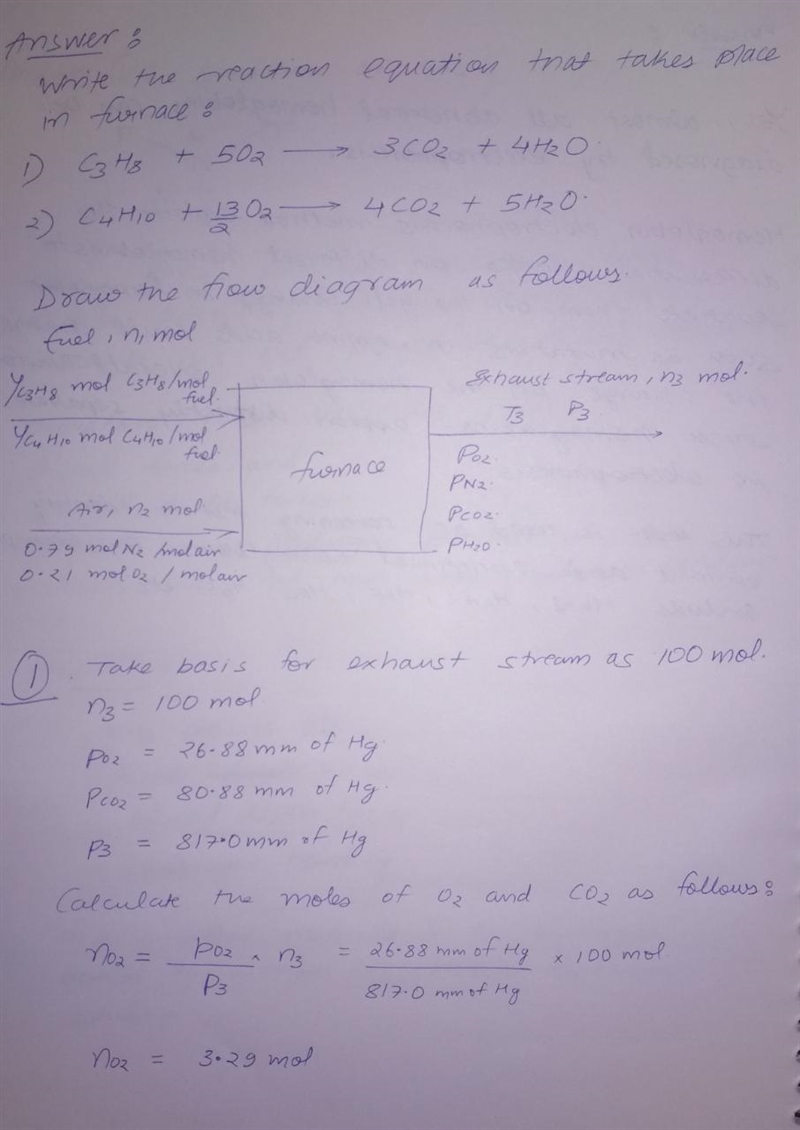 Answer:
Write the reaction equation that takes place
in furnace:
1) C3H8 + 5O2 ⟶ 3CO2 + 4H2O.
2) C4H10 + 13/2 O2 ⟶ 4CO2 + 5H2O.
Draw the flow diagram as follows.
fuel, n, mol
yC3H8 mol C3H8/mol fuel
yC4H10 mol C4H10/mol fuel.
Air, n2 mol
0.79 mol N2/mol air
0.21 mol O2/mol air
furnace
Exhaust stream, n3 mol.
T3 P3
PO2.
PN2.
PCO2.
PH2O.
① . Take basis for exhaust stream as 100 mol.
n3 = 100 mol
pO2 = 26.88 mm of Hg.
pCO2 = 80.88 mm of Hg.
P3 = 817.0 mm of Hg
Calculate the moles of O2 and CO2 as follows:
nO2 = pO2 / P3 × n3 = 26.88 mm of Hg / 817.0 mm of Hg × 100 mol.
nO2 = 3.29 mol